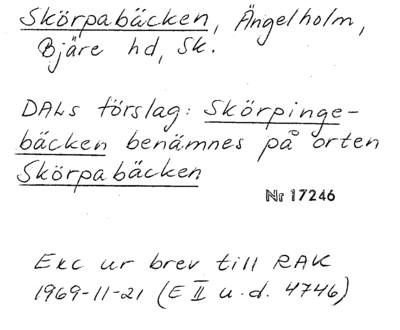 Skörpabäcken, Ängelholm,
Bjäre hd, Sk.
DALs förslag: Skörpinge-
bäcken benämnes på orten
Skörpabäcken
Nr 17246
Exc ur brev till RAK
1969-11-21 (E II u.d. 4746)